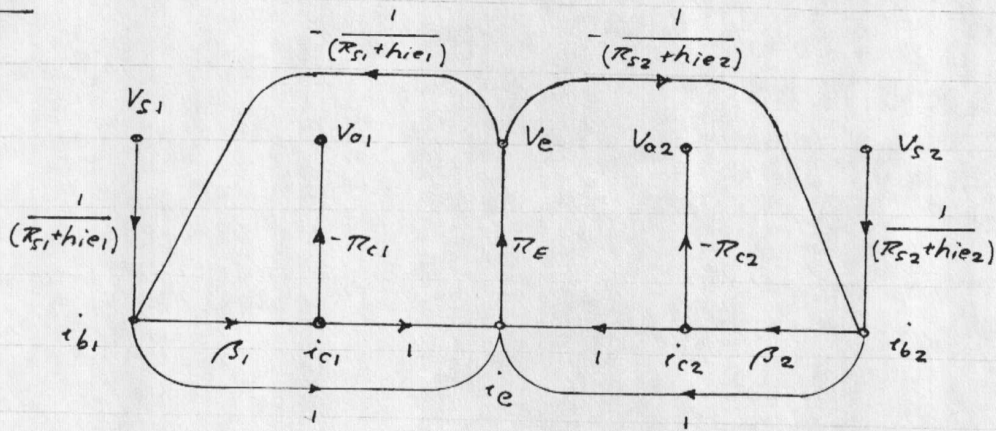 - 1/(Rs1+hie1) - 1/(Rs2+hie2)
Vs1 Va1 Ve Va2 Vs2
1/(Rs1+hie1) -Rc1 RE -Rc2 1/(Rs2+hie2)
ib1 β1 ic1 1 ie 1 ic2 β2 ib2
1 1